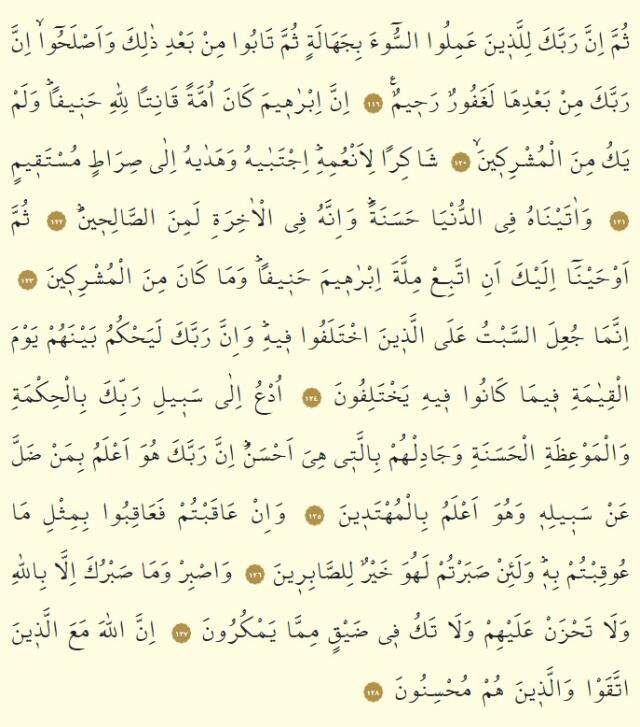 ثُمَّ اِنَّ رَبَّكَ لِلَّذ۪ينَ عَمِلُوا السُّٓوءَ بِجَهَالَةٍ ثُمَّ تَابُوا مِنْ بَعْدِ ذٰلِكَ وَاَصْلَحُٓواۙ اِنَّ
رَبَّكَ مِنْ بَعْدِهَا لَغَفُورٌ رَح۪يمٌ۟ ﴿١١٩﴾ اِنَّ اِبْرٰه۪يمَ كَانَ اُمَّةً قَانِتًا لِلّٰهِ حَن۪يفًاۜ وَلَمْ
يَكُ مِنَ الْمُشْرِك۪ينَۙ ﴿١٢٠﴾ شَاكِرًا لِاَنْعُمِهِۜ اِجْتَبٰيهُ وَهَدٰيهُ اِلٰى صِرَاطٍ مُسْتَق۪يمٍ
﴿١٢١﴾ وَاٰتَيْنَاهُ فِي الدُّنْيَا حَسَنَةًۜ وَاِنَّهُ فِي الْاٰخِرَةِ لَمِنَ الصَّالِح۪ينَۜ ﴿١٢٢﴾ ثُمَّ
اَوْحَيْنَٓا اِلَيْكَ اَنِ اتَّبِعْ مِلَّةَ اِبْرٰه۪يمَ حَن۪يفًاۜ وَمَا كَانَ مِنَ الْمُشْرِك۪ينَ ﴿١٢٣﴾
اِنَّمَا جُعِلَ السَّبْتُ عَلَى الَّذ۪ينَ اخْتَلَفُوا ف۪يهِۜ وَاِنَّ رَبَّكَ لَيَحْكُمُ بَيْنَهُمْ يَوْمَ
الْقِيٰمَةِ ف۪يمَا كَانُوا ف۪يهِ يَخْتَلِفُونَ ﴿١٢٤﴾ اُدْعُ اِلٰى سَب۪يلِ رَبِّكَ بِالْحِكْمَةِ
وَالْمَوْعِظَةِ الْحَسَنَةِ وَجَادِلْهُمْ بِالَّت۪ي هِيَ اَحْسَنُۜ اِنَّ رَبَّكَ هُوَ اَعْلَمُ بِمَنْ ضَلَّ
عَنْ سَب۪يلِه۪ وَهُوَ اَعْلَمُ بِالْمُهْتَد۪ينَ ﴿١٢٥﴾ وَاِنْ عَاقَبْتُمْ فَعَاقِبُوا بِمِثْلِ مَا
عُوقِبْتُمْ بِه۪ۜ وَلَئِنْ صَبَرْتُمْ لَهُوَ خَيْرٌ لِلصَّابِر۪ينَ ﴿١٢٦﴾ وَاصْبِرْ وَمَا صَبْرُكَ اِلَّا بِاللّٰهِ
وَلَا تَحْزَنْ عَلَيْهِمْ وَلَا تَكُ ف۪ي ضَيْقٍ مِمَّا يَمْكُرُونَ ﴿١٢٧﴾ اِنَّ اللّٰهَ مَعَ الَّذ۪ينَ
اتَّقَوْا وَالَّذ۪ينَ هُمْ مُحْسِنُونَ ﴿١٢٨﴾